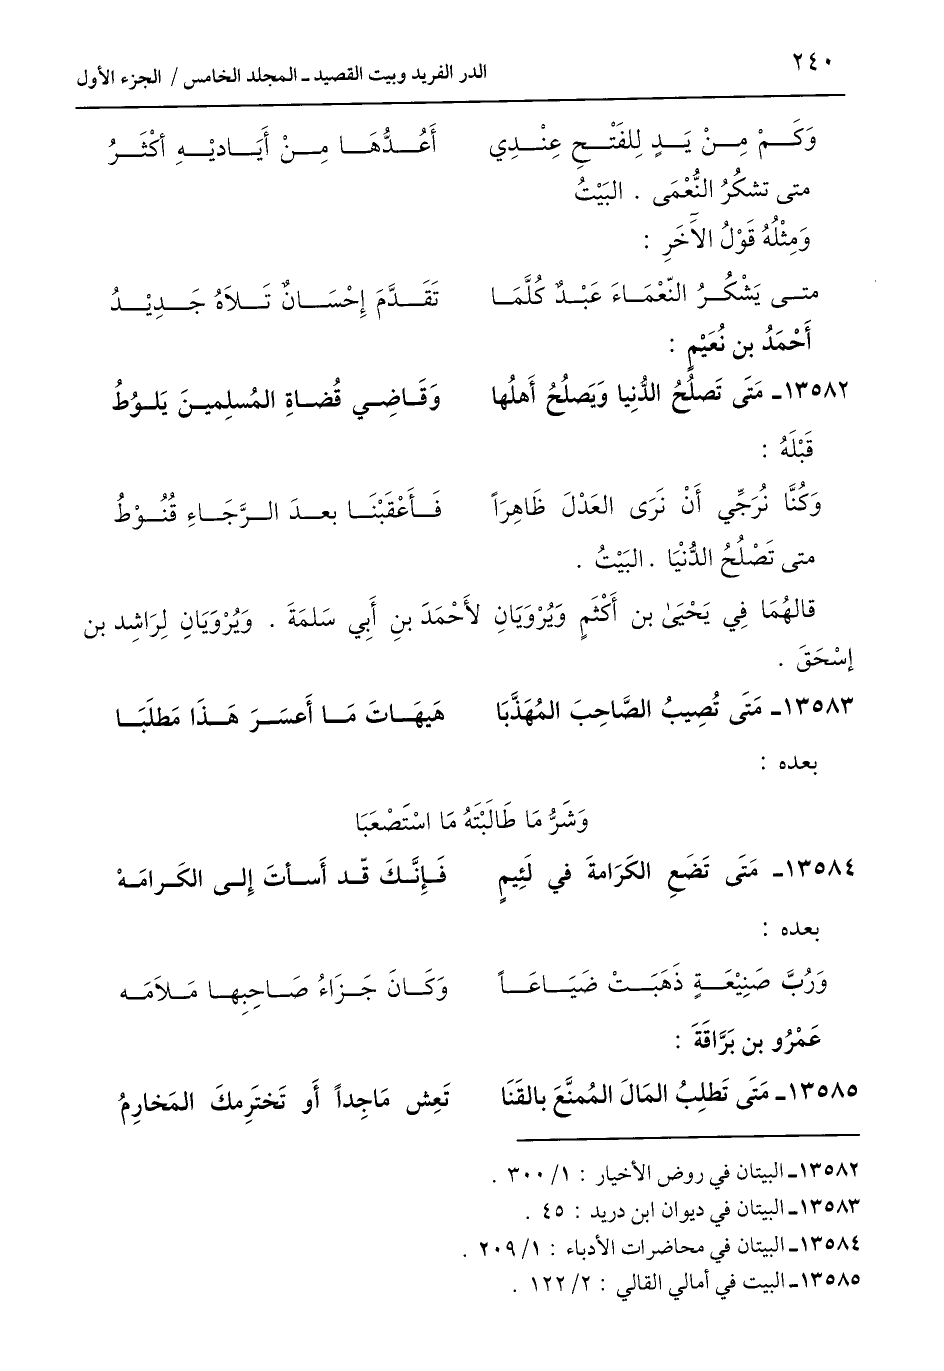 ٢٤٠
الدر الفريد وبيت القصيد ـ المجلد الخامس / الجزء الأول
وَكَـــمْ مِـــنْ يَـــدٍ لِلفَتْـــحِ عِنْـــدِي أَعُـــدُّهَـــا مِـــنْ أَيَـــاديْـــهِ أكْثَـــرُ
متى تشكُرُ النُّعْمَى . البَيْتُ
وَمِثْلُهُ قَوْلُ الآَخَرِ :
متـــى يَشْكُـــرُ النّعْمَـاءَ عَبْـدٌ كُلَّمَـا تَقَـدَّمَ إحْسَـــانٌ تَـــلاَهُ جَـــدِيْـــدُ
أَحْمَدُ بن نُعَيْمٍ :
١٣٥٨٢ـ مَتَى تَصلُحُ الدُّنيا وَيَصلُحُ أهلُها وَقَاضِـي قُضَـاةِ المُسلِميـنَ يَلـوُطُ
قَبْلَهُ :
وَكُنَّا نُرَجِّي أَنْ نَرَى العَدْلَ ظَاهِرَاً فَـأَعْقَبْنَـا بعـدَ الـرَّجَـاءِ قُنُـوْطُ
متى تَصْلُحُ الدُّنْيَا . البَيْتُ .
قالهُمَا فِي يَحْيَىٰ بن أَكْثَمٍ وَيُرْوَيَانِ لأَحْمَدَ بنِ أَبي سَلمَةَ . وَيُرْوَيَانِ لِرَاشِد بن
إسْحَقَ .
١٣٥٨٣ـ مَتَى تُصِيبُ الصَّاحِبَ المُهَذَّبَا هَيهَـاتَ مَـا أَعسَـرَ هَـذَا مَطلَبَـا
بعده :
وَشَرُّ مَا طَالَبْتَهُ مَا اسْتَصْعَبَا
١٣٥٨٤ـ مَتَى تَضَعِ الكَرَامةَ في لَئِيمٍ فَـإنَّـكَ قَـد أَسـأتَ إلـى الكَـرامَـهْ
بعده :
وَرُبَّ صَنِيْعَـــةٍ ذَهَبَـــتْ ضَيَـــاعَـــاً وَكَـــانَ جَـــزَاءُ صَـــاحِبِهـا مَـلاَمَـه
عَمْرُو بن بَرَّاقَةَ :
١٣٥٨٥ـ مَتَى تَطلِبُ المَالَ المُمنَّعَ بالقَنَا تَعِش مَاجِداً أَو تَختَرِمكَ المَخارِمُ
١٣٥٨٢ـ البيتان في روض الأخيار : ١/ ٣٠٠ .
١٣٥٨٣ـ البيتان في ديوان ابن دريد : ٤٥ .
١٣٥٨٤ـ البيتان في محاضرات الأدباء : ١/ ٢٠٩ .
١٣٥٨٥ـ البيت في أمالي القالي : ٢/ ١٢٢ .